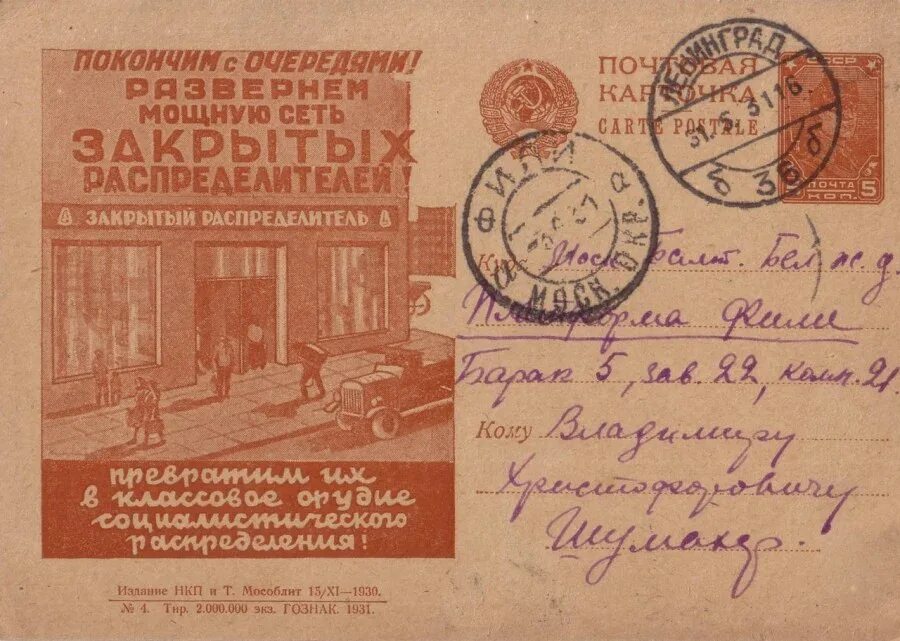 ПОКОНЧИМ с ОЧЕРЕДЯМИ!
РАЗВЕРНЕМ
МОЩНУЮ СЕТЬ
ЗАКРЫТЫХ
РАСПРЕДЕЛИТЕЛЕЙ!
ЗАКРЫТЫЙ РАСПРЕДЕЛИТЕЛЬ
превратим их
в классовое орудие
социалистического
распределения!
Издание НКП и Т. Мособлит 15/XI—1930.
№ 4. Тир. 2.000.000 экз. ГОЗНАК. 1931.
ПОЧТОВАЯ
КАРТОЧКА
CARTE POSTALE
СССР
5 ПОЧТА 5
КОП.
ЛЕНИНГРАД
31.5.31 16
б 36 б
ФИЛИ
МОСК. ОКР.
Куда Моск. Балт. Бел. ж. д.
Платформа Фили
Барак 5, зав. 22, комн. 21
Кому Владимиру
Христофоровичу